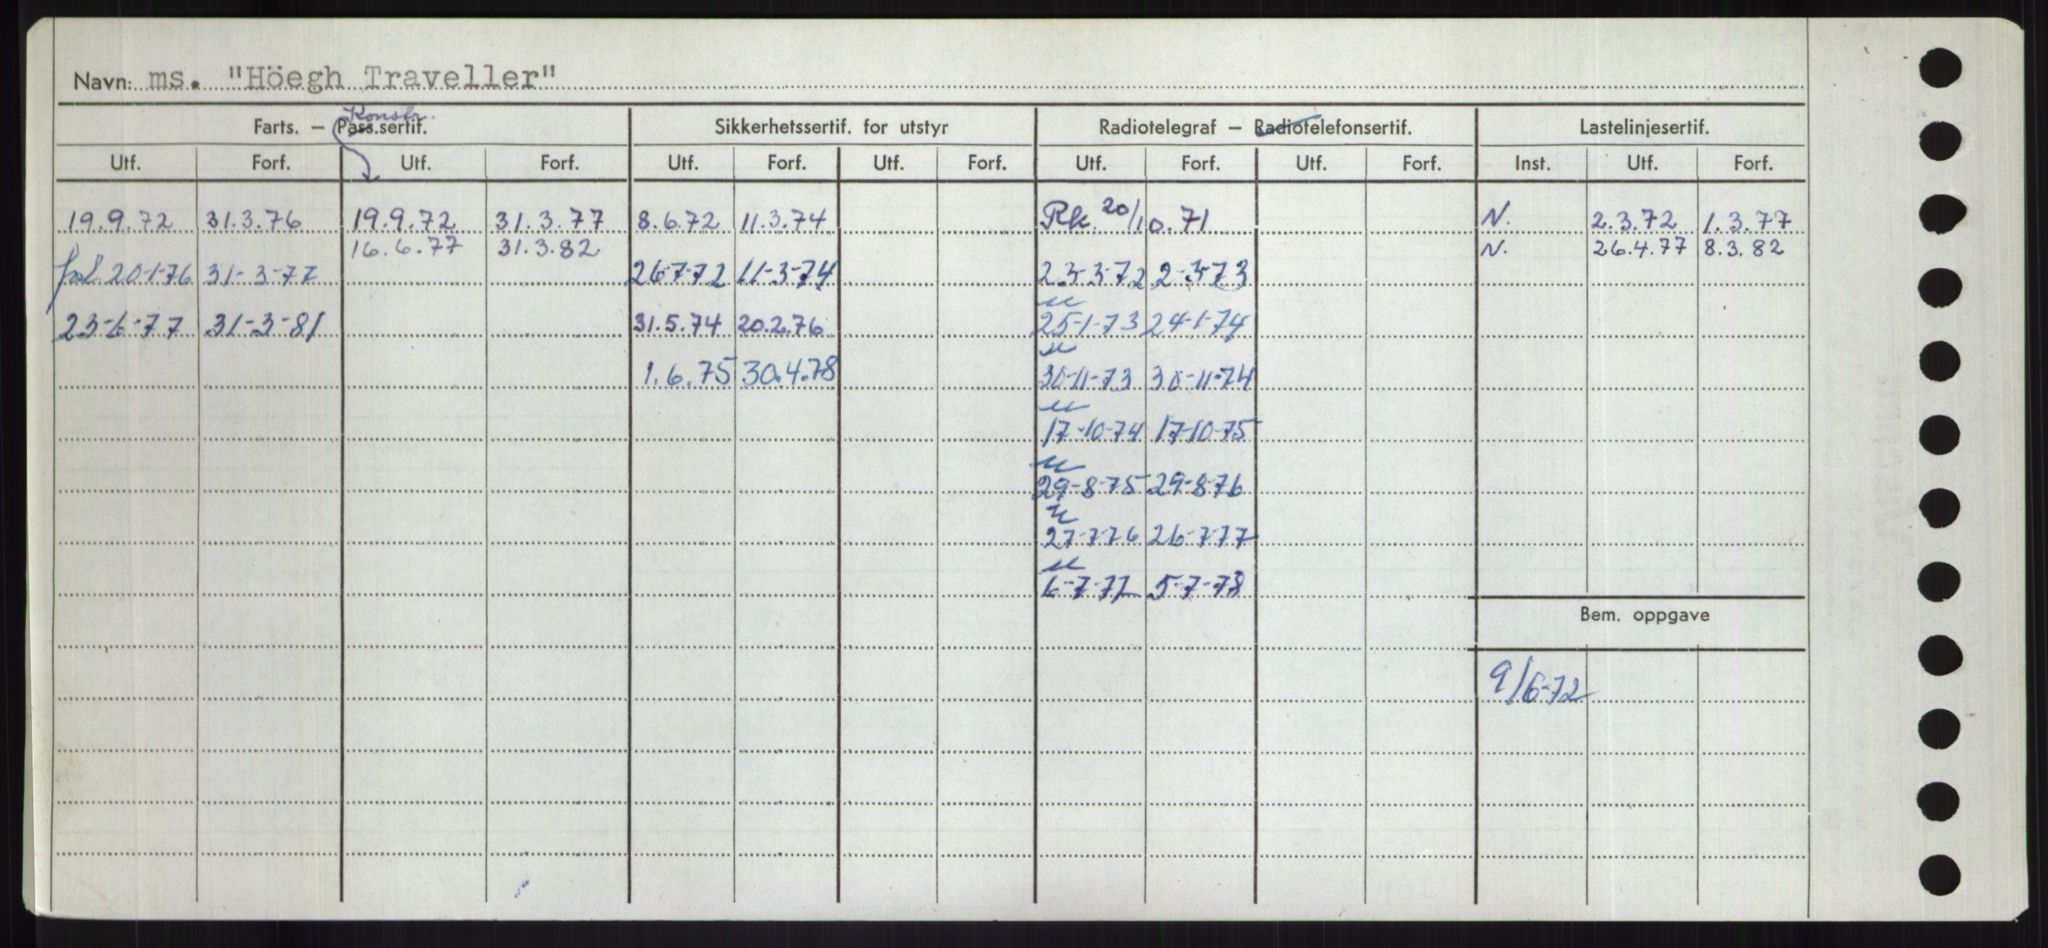 Navn: ms. "Höegh Traveller"
Konstr.
Farts. — Pass.sertif. Sikkerhetssertif. for utstyr Radiotelegraf — Radiotelefonsertif. Lastelinjesertif.
Utf. Forf. Utf. Forf. Utf. Forf. Utf. Forf. Utf. Forf. Utf. Forf. Inst. Utf. Forf.
19.9.72 31.3.76 19.9.72 31.3.77 8.6.72 11.3.74 Rk. 20/10.71 N. 2.3.72 1.3.77
16.6.77 31.3.82 N. 26.4.77 8.3.82
20-1-76 31-3-77 26-7-72 11-3-74 23-3-72 2-3-73
23-6-77 31-3-81 31.5.74 20.2.76 25-1-73 24-1-74
1.6.75 30.4.78 30-11-73 30-11-74
17-10-74 17-10-75
29-8-75 29-8-76
27-7-76 26-7-77
6-7-77 5-7-78
Bem. oppgave
9/6-72